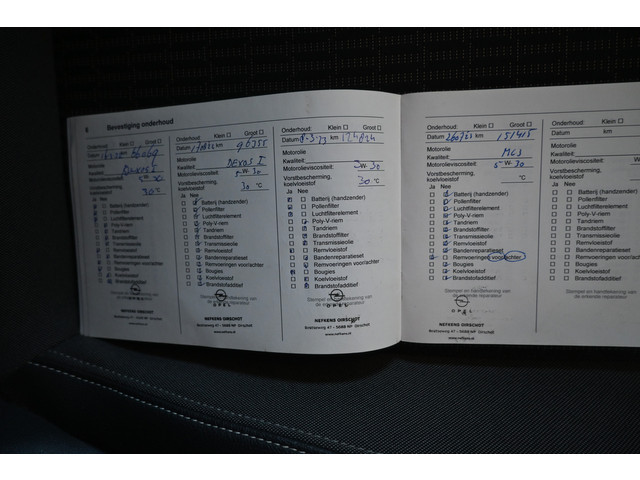 8 Bevestiging onderhoud
Onderhoud: Klein Groot
Datum km
Motorolie
Kwaliteit
Motorolieviscositeit: W-
Vorstbescherming,
koelvloeistof
30°c
Ja Nee
Batterij (handzender)
Pollenfilter
Luchtfilterelement
Poly-V-riem
Tandriem
Brandstoffilter
Transmissieolie
Remvloeistof
Bandenreparatieset
Remvoeringen voor/achter
Bougies
Koelvloeistof
Brandstofadditief
Stempel en handtekening van
de erkende reparateur
OPEL
NEFKENS OIRSCHOT
www.nefkens.nl
Onderhoud: Klein Groot
Datum km 90255
Motorolie
Kwaliteit Dexos I
Motorolieviscositeit: 5 W- 30
Vorstbescherming,
koelvloeistof 30 °C
Ja Nee
Batterij (handzender)
Pollenfilter
Luchtfilterelement
Poly-V-riem
Tandriem
Brandstoffilter
Transmissieolie
Remvloeistof
Bandenreparatieset
Remvoeringen voor/achter
Bougies
Koelvloeistof
Brandstofadditief
Stempel en handtekening van
de erkende reparateur
OPEL
NEFKENS OIRSCHOT
Bestseweg 47 - 5688 NP Oirschot
www.nefkens.nl
Onderhoud: Klein Groot
Datum 8-3-23 km 124824
Motorolie
Kwaliteit
Motorolieviscositeit: W- 30
Vorstbescherming,
koelvloeistof 30 °C
Ja Nee
Batterij (handzender)
Pollenfilter
Luchtfilterelement
Poly-V-riem
Tandriem
Brandstoffilter
Transmissieolie
Remvloeistof
Bandenreparatieset
Remvoeringen voor/achter
Bougies
Koelvloeistof
Brandstofadditief
Stempel en handtekening van
de erkende reparateur
OPEL
NEFKENS OIRSCHOT
Bestseweg 47 - 5688 NP Oirschot
www.nefkens.nl
Onderhoud: Klein Groot
Datum 260723 km 151415
Motorolie
Kwaliteit: MC3
Motorolieviscositeit: 5 W- 30
Vorstbescherming,
koelvloeistof °C
Ja Nee
Batterij (handzender)
Pollenfilter
Luchtfilterelement
Poly-V-riem
Tandriem
Brandstoffilter
Transmissieolie
Remvloeistof
Bandenreparatieset
Remvoeringen voor/achter
Bougies
Koelvloeistof
Brandstofadditief
Stempel en handtekening van
de erkende reparateur
OPEL
NEFKENS OIRSCHOT
Bestseweg 47 - 5688 NP Oirschot
www.nefkens.nl
Onderhoud: Klein Groot
Datum km
Motorolie
Kwaliteit:
Motorolieviscositeit: -W-
Vorstbescherming,
koelvloeistof
Ja Nee
Batterij (handzender)
Pollenfilter
Luchtfilterelement
Poly-V-riem
Tandriem
Brandstoffilter
Transmissieolie
Remvloeistof
Bandenreparatieset
Remvoeringen voor/achter
Bougies
Koelvloeistof
Brandstofadditief
Stempel en handtekening van
de erkende reparateur